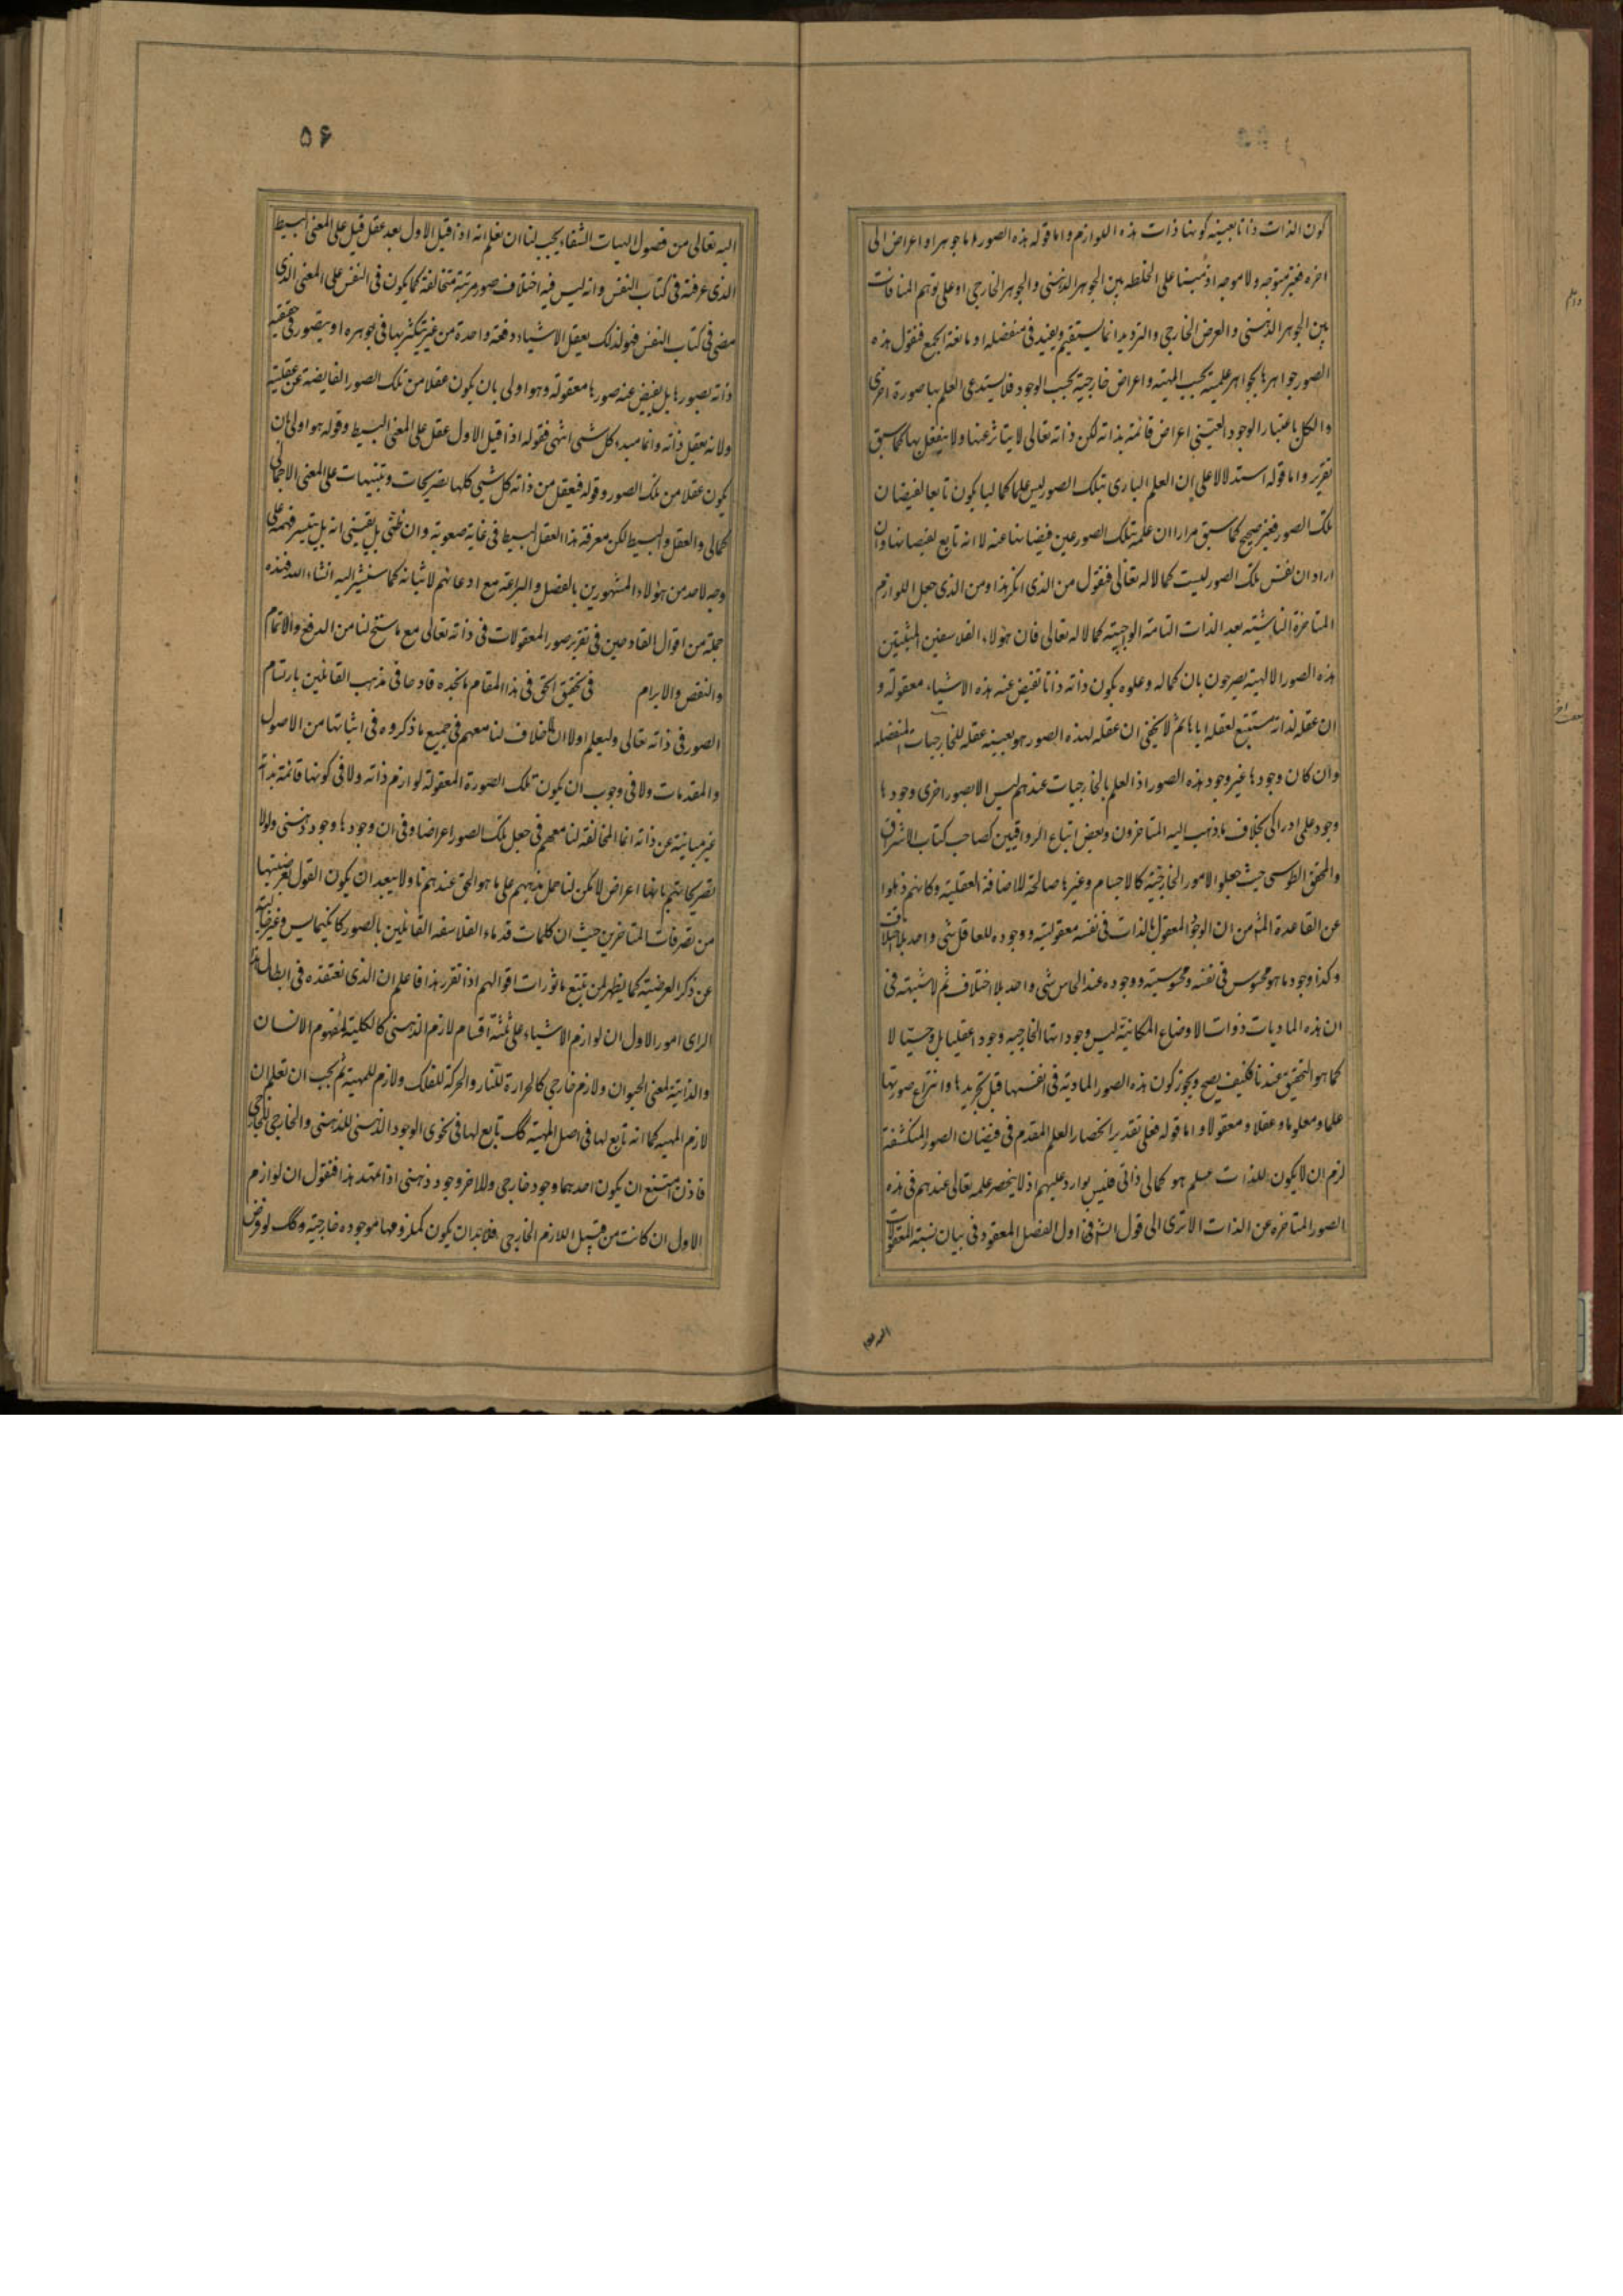 كون الذات ذاتا بعينه كونها ذات هذه اللوازم واما قوله هذه الصور اما جوهرا واعراض الى
اخره فغير متوجه ولا موجه اذ مبناه على الخلط بين الجوهر الذهنى والجوهر الخارجى او على توهم المنافات
بين الجوهر الذهنى والعرض الخارجى والترديد انما يستقيم ويفيد فى منفصله او مانعة الجمع فنقول هذه
الصور جواهرها بجواهر علمية بحسب المهية واعراض خارجية بحسب الوجود فلا يستدعى العلم بها صورة اخرى
والكل باعتبار الوجود العينى اعراض قائمة بذاته لكن ذاته تعالى لا يتاثر عنها ولا ينفعل بها كما سبق
تقريره واما قوله استدلالا على ان العلم البارى بتلك الصور ليس علما كماليا يكون تابعا لفيضان
تلك الصور فغير صحيح كما سبق مرارا ان علمه بتلك الصور عين فيضانها عنه لا انه تابع لفيضانها وان
اراد ان نفس تلك الصور ليست كمالا له تعالى فنقول من الذى انكر هذا ومن الذى جعل اللوازم
المتاخرة الناشئة بعد الذات التامة الواجبية كمالا له تعالى فان هؤلاء الفلاسفة المثبتين
هذه الصور الالهية يصرحون بان كماله وعلوه بكون ذاته ذاتا تفيض عنه هذه الاشياء معقولة و
ان عقله لذاته مستتبع لعقله اياها ثم لا يخفى ان عقله لهذه الصور هو بعينه عقله للخارجيات المنفصله
وان كان وجودها غير وجود هذه الصور اذ العلم بالخارجيات عندهم ليس الا بصور اخرى وجودها
وجود علمى ادراكى بخلاف ما ذهب اليه المتاخرون وبعض اتباع الرواقيين كصاحب كتاب الاشراق
والمحقق الطوسى حيث جعلوا الامور الخارجية كالاجسام وغيرها صالحة للاضافة العقلية وكانهم ذهلوا
عن القاعدة المش من ان الوجود المعقول بالذات فى نفسه معقوليته ووجوده للعاقل شى واحد بلا اختلاف
وكذا وجود ما هو محسوس فى نفسه ومحسوسيته ووجوده عند الحاس شى واحد بلا اختلاف ثم لا شبهة فى
ان هذه الماديات ذوات الاوضاع المكانية ليس وجوداتها الخارجيه وجودا عقليا بل وحسيا لا
كما هو التحقيق عندنا فكيف يصح ويجوز كون هذه الصور المادية فى انفسها قبل تجريدها وانتزاع صورتها
علما ومعلوما وعقلا ومعقولا واما قوله فعلى تقدير انحصار العلم المقدم فى فيضان الصور المنكشفة
لزم ان لا يكون للذات علم هو كمالى ذاتى فليس بوارد عليهم اذ لا ينحصر علمه تعالى عندهم فى هذه
الصور المتاخره عن الذات الا ترى الى قول الش فى اول الفصل المعقود فى بيان نسبة المعقولات
۵۶
اليه تعالى من فصول الهيات الشفاء يجب لنا ان نعلم انه اذا قيل الاول بعد عقل قيل على المعنى البسيط
الذى عرفته فى كتاب النفس وانه ليس فيه اختلاف صور مرتبة متخالفة كما يكون فى النفس على المعنى الذى
مضى فى كتاب النفس فهو لذلك يعقل الاشياء دفعة واحدة من غير يتكثر بها فى جوهره او يتصور فى حقيقة
ذاته بصورها بل يفيض عنه صورها معقولة وهو اولى بان يكون عقلا من تلك الصور الفايضة عن عقليته
ولانه يعقل ذاته وانها مبدء كل شى انتهى فقوله اذا قيل الاول عقل على المعنى البسيط وقوله هو اولى بان
يكون عقلا من تلك الصور وقوله فيعقل من ذاته كل شيى كلها تصريحات وتنبيهات على المعنى الاجمالى
كمالى والعقل والبسيط لكن معرفة هذا العقل البسيط فى غاية صعوبة وان ظنى بل يقينى انه بل يتيسر فهمه على
وجه لاحد من هؤلاء المشهورين بالفضل والبراعة مع ادعائهم لاثباته كما سنشير اليه انشاء الله فهذه
جملة من اقوال القادحين فى تقرير صور المعقولات فى ذاته تعالى مع ما سنح لنا من الدفع والاتمام
والنقض والابرام فى تحقيق الحق فى هذا المقام ما نجده قادحا فى مذهب القائلين بارتسام
الصور فى ذاته تعالى وليعلم اولا ان لا خلاف لنا معهم فى جميع ما ذكروه فى اثباتها من الاصول
والمقدمات ولا فى وجوب ان يكون تلك الصورة المعقولة لوازم ذاته ولا فى كونها قائمة بذاته
غير مباينة عن ذاته انما المخالفة لنا معهم فى جعل تلك الصور اعراضا وفى ان وجودها وجود ذهنى ولولا
تصريحاتهم بانها اعراض لامكن لنا حمل مذهبهم على ما هو الحق عندهم ولا يبعد ان يكون القول بعرضيتها
من تصرفات المتاخرين حيث ان كلمات قدماء الفلاسفه القائلين بالصور كانكيمايس وغيره خالية
عن ذكر العرضية كما يظهر لمن يتتبع ماثورات اقوالهم اذا تقرر هذا فاعلم ان الذى نعتقده فى ابطال هذا
الراى امور الاول ان لوازم الاشياء على ثلثة اقسام لازم الذهنى كالكلية لمفهوم الانسان
والذاتية لمعنى الحيوان ولازم خارجى كالحرارة للنار والحركة للفلك ولازم للمهية ثم يجب ان تعلم ان
لازم المهيه كما انه تابع لها فى اصل المهية كك تابع لها فى نحوى الوجود الذهنى للذهنى والخارجى للخارجى
فاذن امتنع ان يكون احدهما وجود خارجى وللاخر وجود ذهنى اذا تمهد هذا فنقول ان لوازم
الاول ان كانت من قبيل اللازم الخارجى فلابد ان يكون كملزومها موجوده خارجية وكك لو فرض